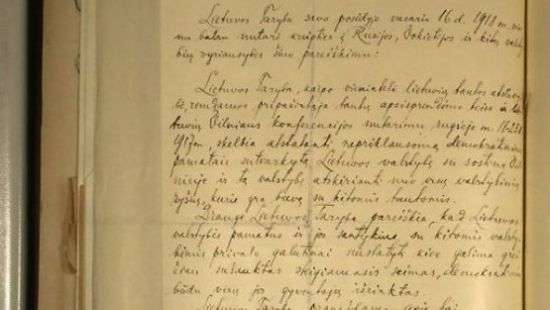 Lietuvos Taryba savo posėdyje vasario 16 d. 1918 m. vie
nu balsu nutarė kreiptis į Rusijos, Vokietijos ir kitų valsty
bių vyriausybes šiuo pareiškimu:
Lietuvos Taryba, kaipo vienintelė lietuvių tautos atstovy
bė, remdamos pripažintąja tautų apsisprendimo teise ir lie
tuvių Vilniaus konferencijos nutarimu rugsėjo m. 18-23 d.
1917 m., skelbia atstatanti nepriklausomą demokratiniais
pamatais sutvarkytą Lietuvos valstybę su sostine Vil
niuje ir tą valstybę atskirianti nuo visų valstybinių
ryšių, kurie yra buvę su kitomis tautomis.
Drauge Lietuvos Taryba pareiškia, kad Lietuvos
valstybės pamatus ir jos santykius su kitomis valsty
bėmis privalo galutinai nustatyti kiek galima grei
čiau sušauktas steigiamasis seimas, demokratiniu
būdu visų jos gyventojų išrinktas.
Lietuvos Taryba, pranešdama apie tai